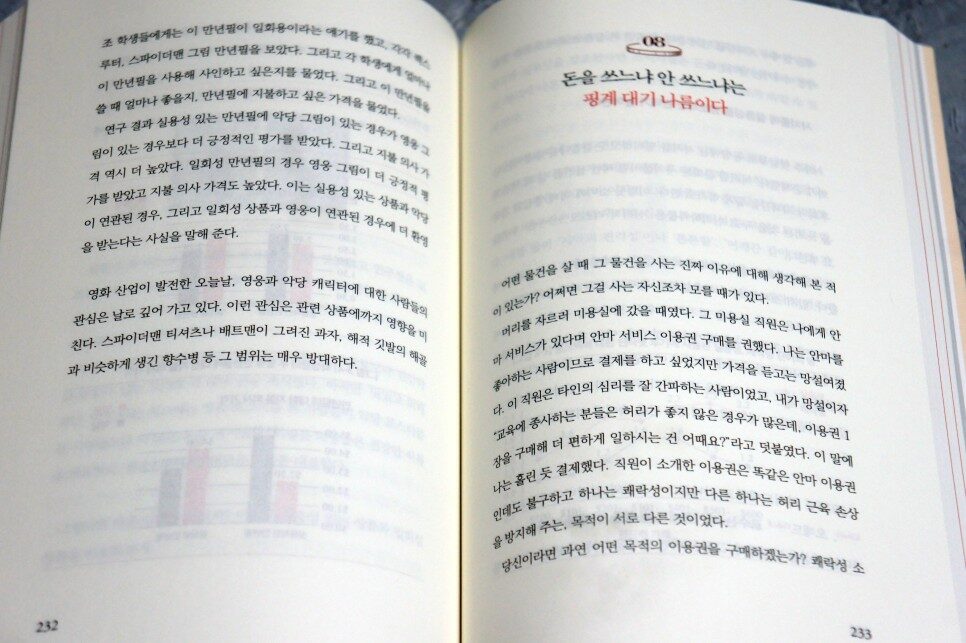 조 학생들에게는 이 만년필이 일회용이라는 얘기를 했고, 각각 렉스
루터, 스파이더맨 그림 만년필을 보았다. 그리고 각 학생에게 얼마나
이 만년필을 사용해 사인하고 싶은지를 물었다. 그리고 이 만년필을
쓸 때 얼마나 좋을지, 만년필에 지불하고 싶은 가격을 물었다.
연구 결과 실용성 있는 만년필에 악당 그림이 있는 경우가 영웅 그
림이 있는 경우보다 더 긍정적인 평가를 받았다. 그리고 지불 의사 가
격 역시 더 높았다. 일회성 만년필의 경우 영웅 그림이 더 긍정적 평
가를 받았고 지불 의사 가격도 높았다. 이는 실용성 있는 상품과 악당
이 연관된 경우, 그리고 일회성 상품과 영웅이 연관된 경우에 더 환영
을 받는다는 사실을 말해 준다.
영화 산업이 발전한 오늘날, 영웅과 악당 캐릭터에 대한 사람들의
관심은 날로 깊어 가고 있다. 이런 관심은 관련 상품에까지 영향을 미
친다. 스파이더맨 티셔츠나 배트맨이 그려진 과자, 해적 깃발의 해골
과 비슷하게 생긴 향수병 등 그 범위는 매우 방대하다.
232
08
돈을 쓰느냐 안 쓰느냐는
핑계 대기 나름이다
어떤 물건을 살 때 그 물건을 사는 진짜 이유에 대해 생각해 본 적
이 있는가? 어쩌면 그걸 사는 자신조차 모를 때가 있다.
머리를 자르러 미용실에 갔을 때였다. 그 미용실 직원은 나에게 안
마 서비스가 있다며 안마 서비스 이용권 구매를 권했다. 나는 안마를
좋아하는 사람이므로 결제를 하고 싶었지만 가격을 듣고는 망설여졌
다. 이 직원은 타인의 심리를 잘 간파하는 사람이었고, 내가 망설이자
“교육에 종사하는 분들은 허리가 좋지 않은 경우가 많은데, 이용권 1
장을 구매해 더 편하게 일하시는 건 어때요?”라고 덧붙였다. 이 말에
나는 홀린 듯 결제했다. 직원이 소개한 이용권은 똑같은 안마 이용권
인데도 불구하고 하나는 쾌락성이지만 다른 하나는 허리 근육 손상
을 방지해 주는, 목적이 서로 다른 것이었다.
당신이라면 과연 어떤 목적의 이용권을 구매하겠는가? 쾌락성 소
233